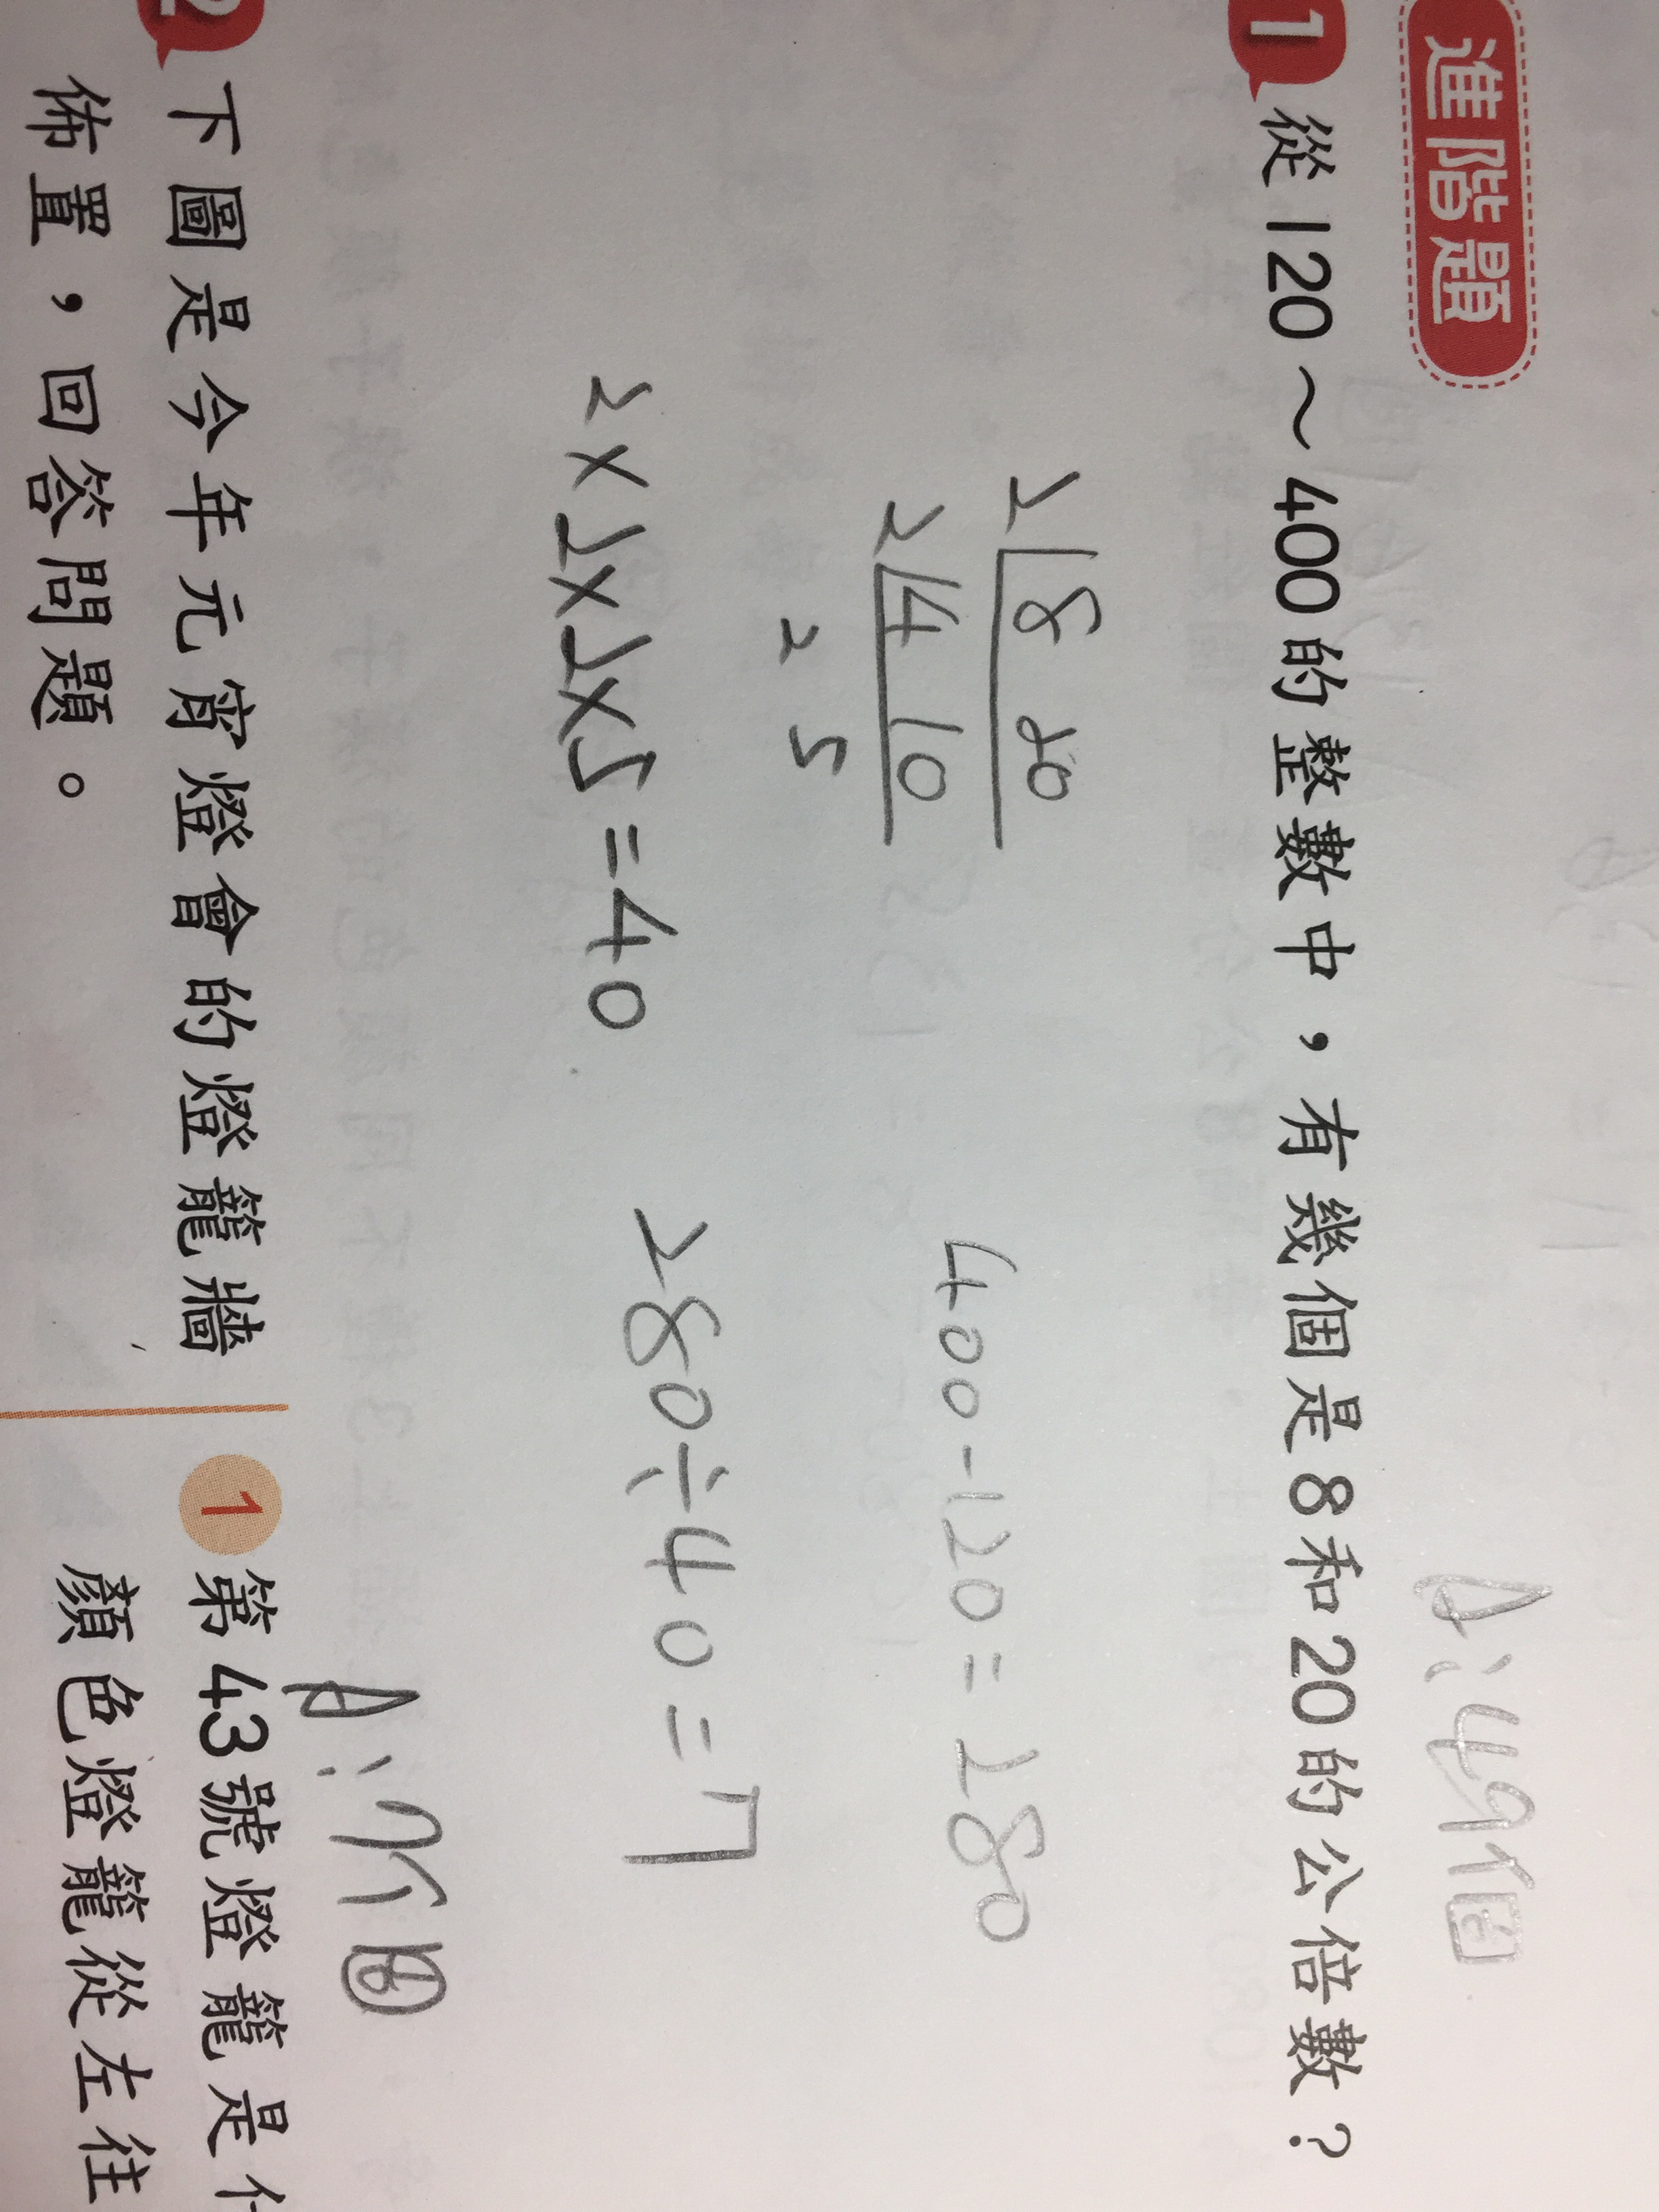 進階題
1 從120～400的整數中，有幾個是8和20的公倍數？
2 8 20
2 4 10
2 5
400-120=280
2×2×2×5=40
280÷40=7
2 下圖是今年元宵燈會的燈籠牆
佈置，回答問題。
1 第43號燈籠是
顏色燈籠從左往